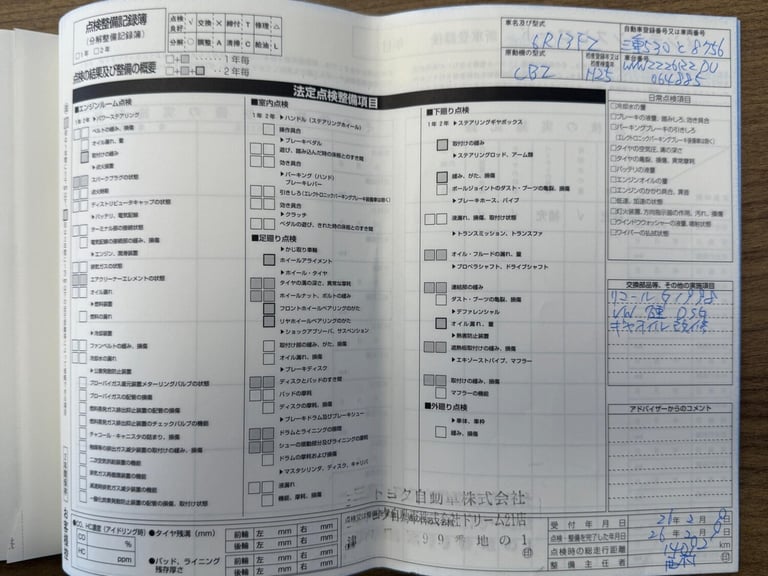 点検整備記録簿
(分解整備記録簿)
□1年 □2年
点検良好 √ 交換 × 締付 T 修理 △
分解 ○ 調整 A 清掃 C 給油 L
点検の結果及び整備の概要
□+□ ‥‥1年毎
□+□+□ ‥2年毎
車名及び型式
自動車登録番号又は車両番号
6R13FZ
三重530と8756
原動機の型式
車台番号
CBZ
H25
064885
法定点検整備項目
■エンジンルーム点検
1年 2年 ▶パワーステアリング
ベルトの緩み、損傷
オイル漏れ、量
取付けの緩み
▶点火装置
スパークプラグの状態
点火時期
ディストリビュータキャップの状態
▶バッテリ、電気配線
ターミナル部の接続状態
電気配線の接続部の緩み、損傷
▶エンジン、潤滑装置
排気ガスの状態
エアクリーナーエレメントの状態
オイル漏れ
▶燃料装置
燃料の漏れ
▶冷却装置
ファンベルトの緩み、損傷
冷却水の漏れ
▶公害発散防止装置
ブローバイガス還元装置メターリングバルブの状態
ブローバイガスの配管の損傷
燃料蒸発ガス排出抑止装置の配管の損傷
燃料蒸発ガス排出抑止装置のチェックバルブの機能
チャコール・キャニスタの詰まり、損傷
触媒等の排出ガス減少装置の取付けの緩み、損傷
二次空気供給装置の機能
排気ガス再循環装置の機能
減速時排気ガス減少装置の機能
一酸化炭素発散防止装置の配管の損傷、取付状態
■室内点検
1年 2年 ▶ハンドル(ステアリングホイール)
操作具合
▶ブレーキペダル
遊び、踏み込んだ時の床板とのすき間
効き具合
▶パーキング(ハンド)
ブレーキレバー
引きしろ(エレクトロニックパーキングブレーキ装備車は除く)
効き具合
▶クラッチ
ペダルの遊び、きれた時の床板とのすき間
■足廻り点検
▶かじ取り車輪
ホイールアライメント
▶ホイール・タイヤ
タイヤの溝の深さ、異常な摩耗
ホイールナット、ボルトの緩み
フロントホイールベアリングのがた
リヤホイールベアリングのがた
▶ショックアブソーバ、サスペンション
取付け部の緩み、がた、損傷
オイル漏れ、損傷
▶ブレーキディスク
ディスクとパッドのすき間
パッドの摩耗
ディスクの摩耗、損傷
▶ブレーキドラム及びブレーキシュー
ドラムとライニングの隙間
シューの摺動部分及びライニングの摩耗
ドラムの摩耗および損傷
▶マスタシリンダ、ディスク、キャリパ
液漏れ
機能、摩耗、損傷
■下廻り点検
1年 2年 ▶ステアリングギヤボックス
取付けの緩み
▶ステアリングロッド、アーム類
緩み、がた、損傷
ボールジョイントのダスト・ブーツの亀裂、損傷
▶ブレーキホース、パイプ
液漏れ、損傷、取付け状態
▶トランスミッション、トランスファ
オイル・フルードの漏れ、量
▶プロペラシャフト、ドライブシャフト
連結部の緩み
ダスト・ブーツの亀裂、損傷
▶デファレンシャル
オイル漏れ、量
▶熱害防止装置
遮熱板取付けの緩み、損傷
▶エキゾーストパイプ、マフラー
取付けの緩み、損傷
マフラーの機能
■外廻り点検
▶車体、車枠
緩み、損傷
日常点検項目
□冷却水の量
□ブレーキの液量、踏みしろ、効き具合
□パーキングブレーキの引きしろ
(エレクトロニックパーキングブレーキ装備車は除く)
□タイヤの空気圧、溝の深さ
□タイヤの亀裂、損傷、異常摩耗
□バッテリの液量
□エンジンオイルの量
□エンジンのかかり具合、異音
□低速、加速の状態
□灯火装置、方向指示器の作用、汚れ、損傷
□ウインドウウォッシャーの液量、噴射状態
□ワイパーの払拭状態
交換部品等、その他の実施項目
リコール
VW DSG
ギヤオイル 改修
アドバイザーからのコメント
●CO、HC濃度(アイドリング時)
CO %
HC ppm
●タイヤ残溝(mm)
前輪 左 mm 右 mm
後輪 左 mm 右 mm
●パッド、ライニング
残存厚さ
前輪 左 mm 右 mm
後輪 左 mm 右 mm
三重トヨタ自動車株式会社
ドリーム21店
99番地の1
受付年月日
26年2月8日
点検・整備を完了した年月日
26年2月8日
点検時の総走行距離
km
整備主任者
印